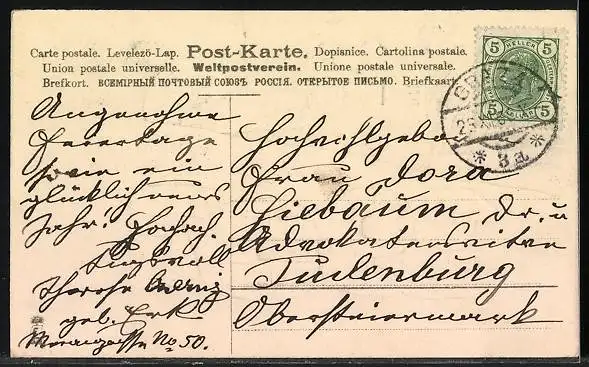 Carte postale. Levelező-Lap. Post-Karte. Dopisnice. Cartolina postale.
Union postale universelle. Weltpostverein. Unione postale universale.
Brefkort. ВСЕМІРНЫЙ ПОЧТОВЫЙ СОЮЗЪ РОССІЯ. ОТКРЫТОЕ ПИСЬМО. Brevkaart.
5 HELLER 5
5 HELLER 5
GRAZ
3a
Angenehme
Feiertage
sowie ein
glücklich neues
Jahr! Hochach
tungsvoll
Therese
geb. Erk
No 50.
Hochwohlgebo
Frau Dora
Hiebaum Dr. u
Advokatens
Judenburg
Obersteiermark